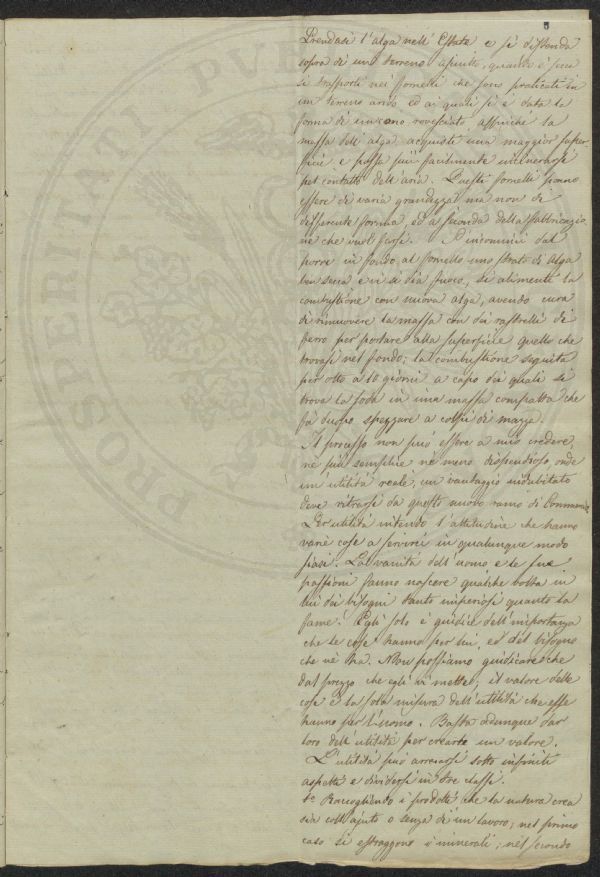 Prendasi l'alga nell'Estate e si distenda
sopra di uno terreno asciutto, quando è secca
si trasporti nei fornelli che sono praticati in
un terreno arido ed ai quali si è data la
forma di un cono rovesciato affinche la
massa dell'alga acquisti una maggior super
ficie e possa più facilmente incinerarsi
pel contatto dell'aria. Questi fornelli ponno
essere di varia grandezza ma non di
differente forma, ed a seconda della fabbricazio
ne che vuol farsi. S'incominci dal
porre in fondo al fornello uno strato di alga
ben secca e vi si dia fuoco, si alimenti la
combustione con nuova alga, avendo cura
di rimuovere la massa con dei rastrelli di
ferro per portare alla superficie quello che
trovasi nel fondo; la combustione seguita
per otto a 10 giorni a capo dei quali si
trova la soda in una massa compatta che
fà duopo spezzare a colpi di mazze.
Il processo non può essere a mio credere
nè più semplice nè meno dispendioso, onde
un'utilità reale, un vantaggio indubitato
deve ritrarsi da questo nuovo ramo di Commercio
Per utilità intendo l'attitudine che hanno
varie cose a servirci in qualunque modo
siasi. La vanità dell'uomo e le sue
passioni fanno nascere qualche volta in
lui dei bisogni tanto imperiosi quanto la
fame. Egli solo è giudice dell'importanza
che le cose hanno per lui, ed del bisogno
che ne ha. Non possiamo guidicare che
dal prezzo che egli vi mette; il valore delle
cose è la sola misura dell'utilità che esse
hanno per l'uomo. Basta adunque dar
loro dell'utilità per crearle un valore.
L'utilità può crearsi sotto infiniti
aspetti e dividersi in tre classi.
1.º Raccogliendo i prodotti che la natura crea
sia coll'ajuto o senza di un lavoro; nel primo
caso si estraggono i minerali; nel secondo
PRO
RILIATI
PUBL